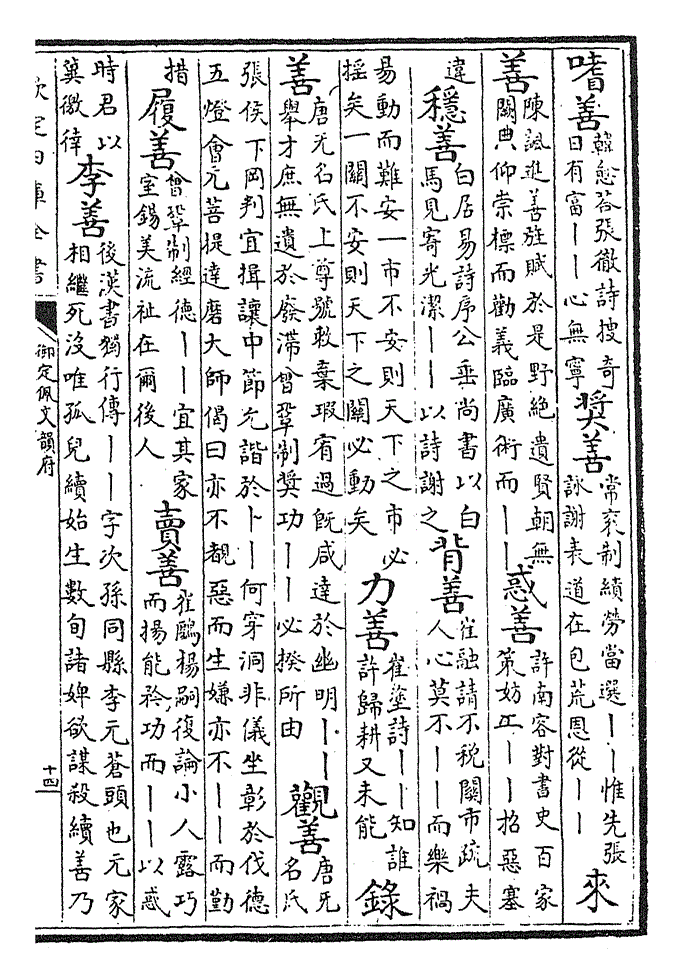 嗜善韓愈荅張徹詩搜奇日有富丨丨心無寧奬善常衮制績勞當選丨丨惟先張詠謝表道在包荒恩從丨丨來
善陳諷進善旌賦於是野絶遺賢朝無闕典仰崇標而勸義臨廣術而丨丨惑善許南容對書史百家策妨正丨丨招惡塞
違穩善白居易詩序公垂尚書以白馬見寄光潔丨丨以詩謝之背善崔融請不税關市疏夫人心莫不丨丨而樂禍
易動而難安一市不安則天下之市必揺矣一關不安則天下之關必動矣力善崔塗詩丨丨知誰許歸耕又未能錄
善唐无名氏上尊號赦棄瑕宥過旣咸達於幽明丨丨舉才庶無遺於廢滯曾鞏制奬功丨丨必揆所由觀善唐无名氏
張侯下岡判宜揖讓中節允諧於卜丨何穿洞非儀坐彰於伐德五燈會元菩提達磨大師偈曰亦不覩惡而生嫌亦不丨丨而勤
措履善曾鞏制經德丨丨宜其家室錫美流祉在爾後人賣善崔鷗楊嗣復論小人露巧而揚能矜功而丨丨以惑
時君以冀徼倖李善後漢書獨行傳丨丨字次孫同縣李元蒼頭也元家相繼死沒唯孤兒續始生數旬諸婢欲謀殺續善乃
欽定四庫全書
御定佩文韻府
十四